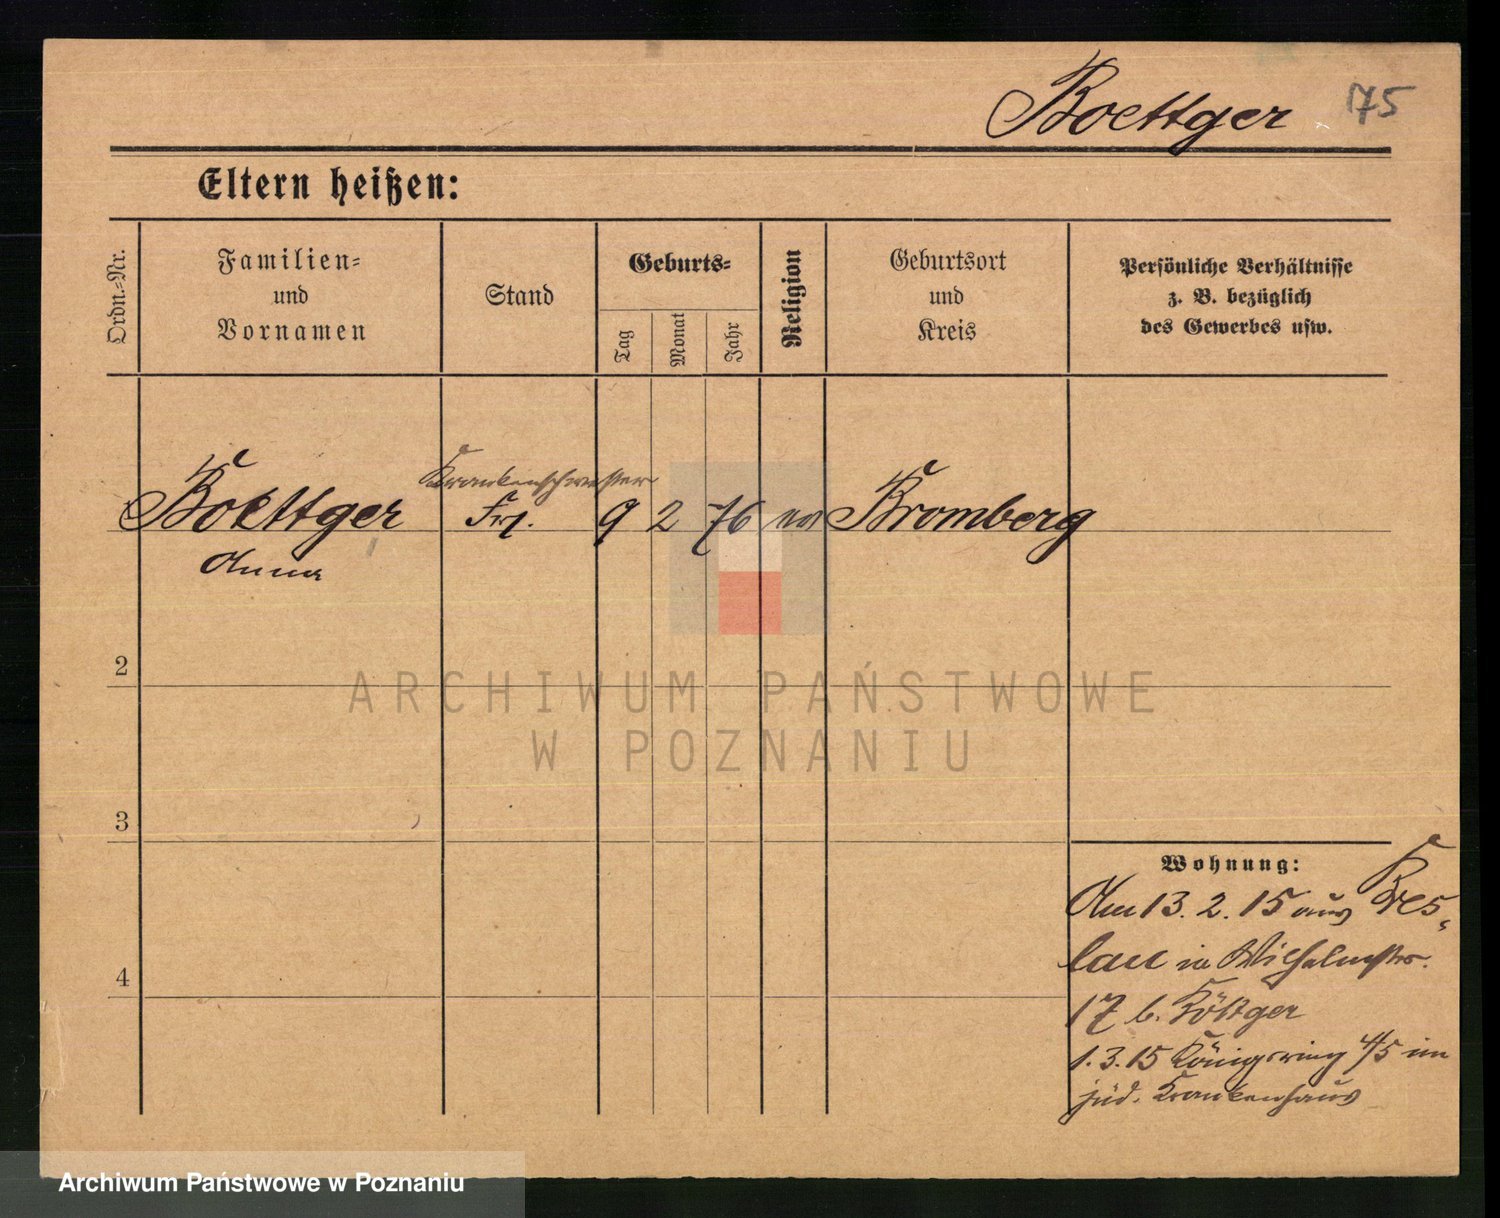 Boettger 175
Eltern heißen:
Ordn.-Nr.
Familien-
und
Vornamen
Stand
Geburts-
Tag
Monat
Jahr
Religion
Geburtsort
und
Kreis
Persönliche Verhältnisse
z. B. bezüglich
des Gewerbes usw.
Krankenschwester
Boettger Frl. 9 2 76 ev Bromberg
Anna
2
3
4
Wohnung:
Am 13. 2. 15 aus Bres-
lau in Wilhelmstr.
17 b. Böttger
1. 3. 15 Königsring 4/5 im
jüd. Krankenhaus
ARCHIWUM PAŃSTWOWE
W POZNANIU
Archiwum Państwowe w Poznaniu